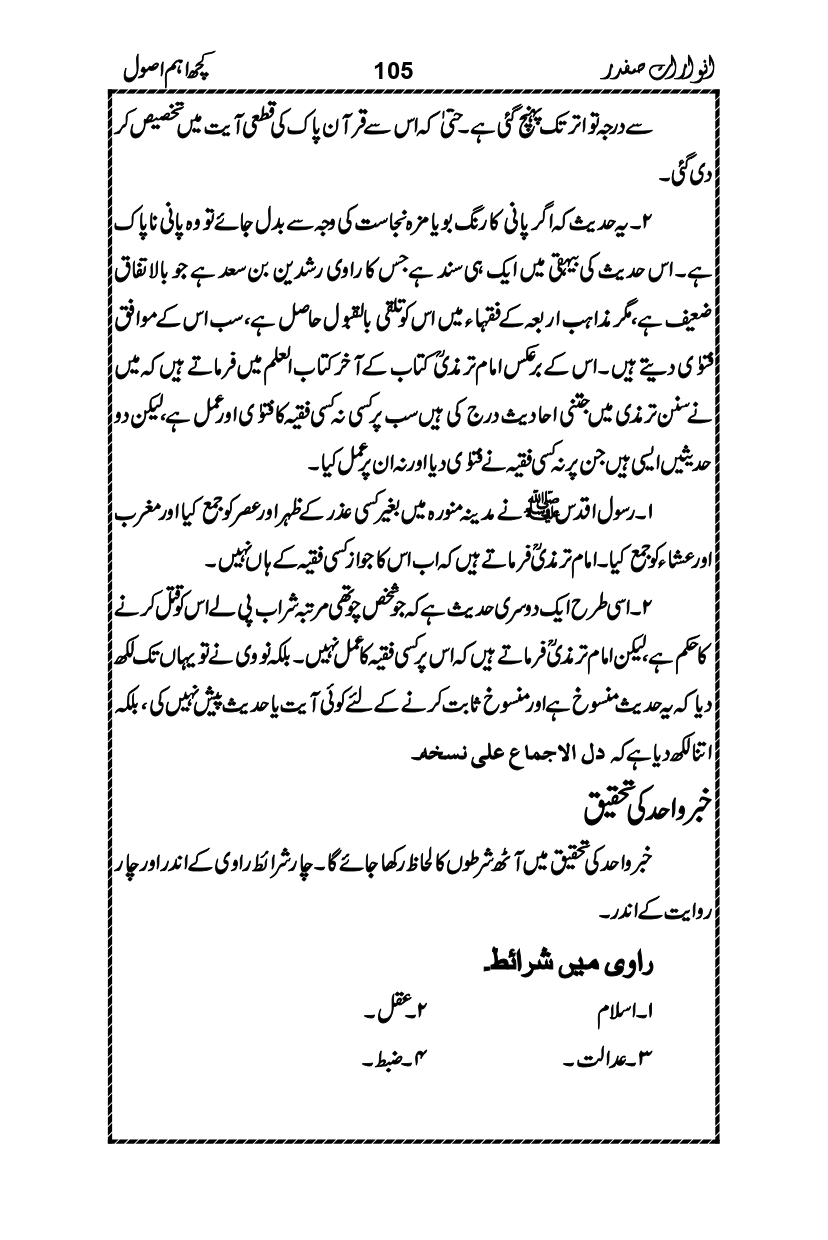 انوارات صفدر 105 کچھ اہم اصول
سے درجہ تواتر تک پہنچ گئی ہے۔ حتیٰ کہ اس سے قرآن پاک کی قطعی آیت میں تخصیص کر
دی گئی۔
۲۔ یہ حدیث کہ اگر پانی کا رنگ بو یا مزہ نجاست کی وجہ سے بدل جائے تو وہ پانی ناپاک
ہے۔ اس حدیث کی بیہقی میں ایک ہی سند ہے جس کا راوی رشدین بن سعد ہے جو بالاتفاق
ضعیف ہے، مگر مذاہب اربعہ کے فقہاء میں اس کو تلقی بالقبول حاصل ہے، سب اس کے موافق
فتوٰی دیتے ہیں۔ اس کے برعکس امام ترمذیؒ کتاب کے آخر کتاب العلم میں فرماتے ہیں کہ میں
نے سنن ترمذی میں جتنی احادیث درج کی ہیں سب پر کسی نہ کسی فقیہ کا فتوٰی اور عمل ہے، لیکن دو
حدیثیں ایسی ہیں جن پر نہ کسی فقیہ نے فتوٰی دیا اور نہ ان پر عمل کیا۔
۱۔ رسول اقدس ﷺ نے مدینہ منورہ میں بغیر کسی عذر کے ظہر اور عصر کو جمع کیا اور مغرب
اور عشاء کو جمع کیا۔ امام ترمذیؒ فرماتے ہیں کہ اب اس کا جواز کسی فقیہ کے ہاں نہیں۔
۲۔ اسی طرح ایک دوسری حدیث ہے کہ جو شخص چوتھی مرتبہ شراب پی لے اس کو قتل کرنے
کا حکم ہے، لیکن امام ترمذیؒ فرماتے ہیں کہ اس پر کسی فقیہ کا عمل نہیں۔ بلکہ نووی نے تو یہاں تک لکھ
دیا کہ یہ حدیث منسوخ ہے اور منسوخ ثابت کرنے کے لئے کوئی آیت یا حدیث پیش نہیں کی، بلکہ
اتنا لکھ دیا ہے کہ دل الاجماع علی نسخہ۔
خبر واحد کی تحقیق
خبر واحد کی تحقیق میں آٹھ شرطوں کا لحاظ رکھا جائے گا۔ چار شرائط راوی کے اندر اور چار
روایت کے اندر۔
راوی میں شرائط۔
۱۔ اسلام ۲۔ عقل۔
۳۔ عدالت۔ ۴۔ ضبط۔